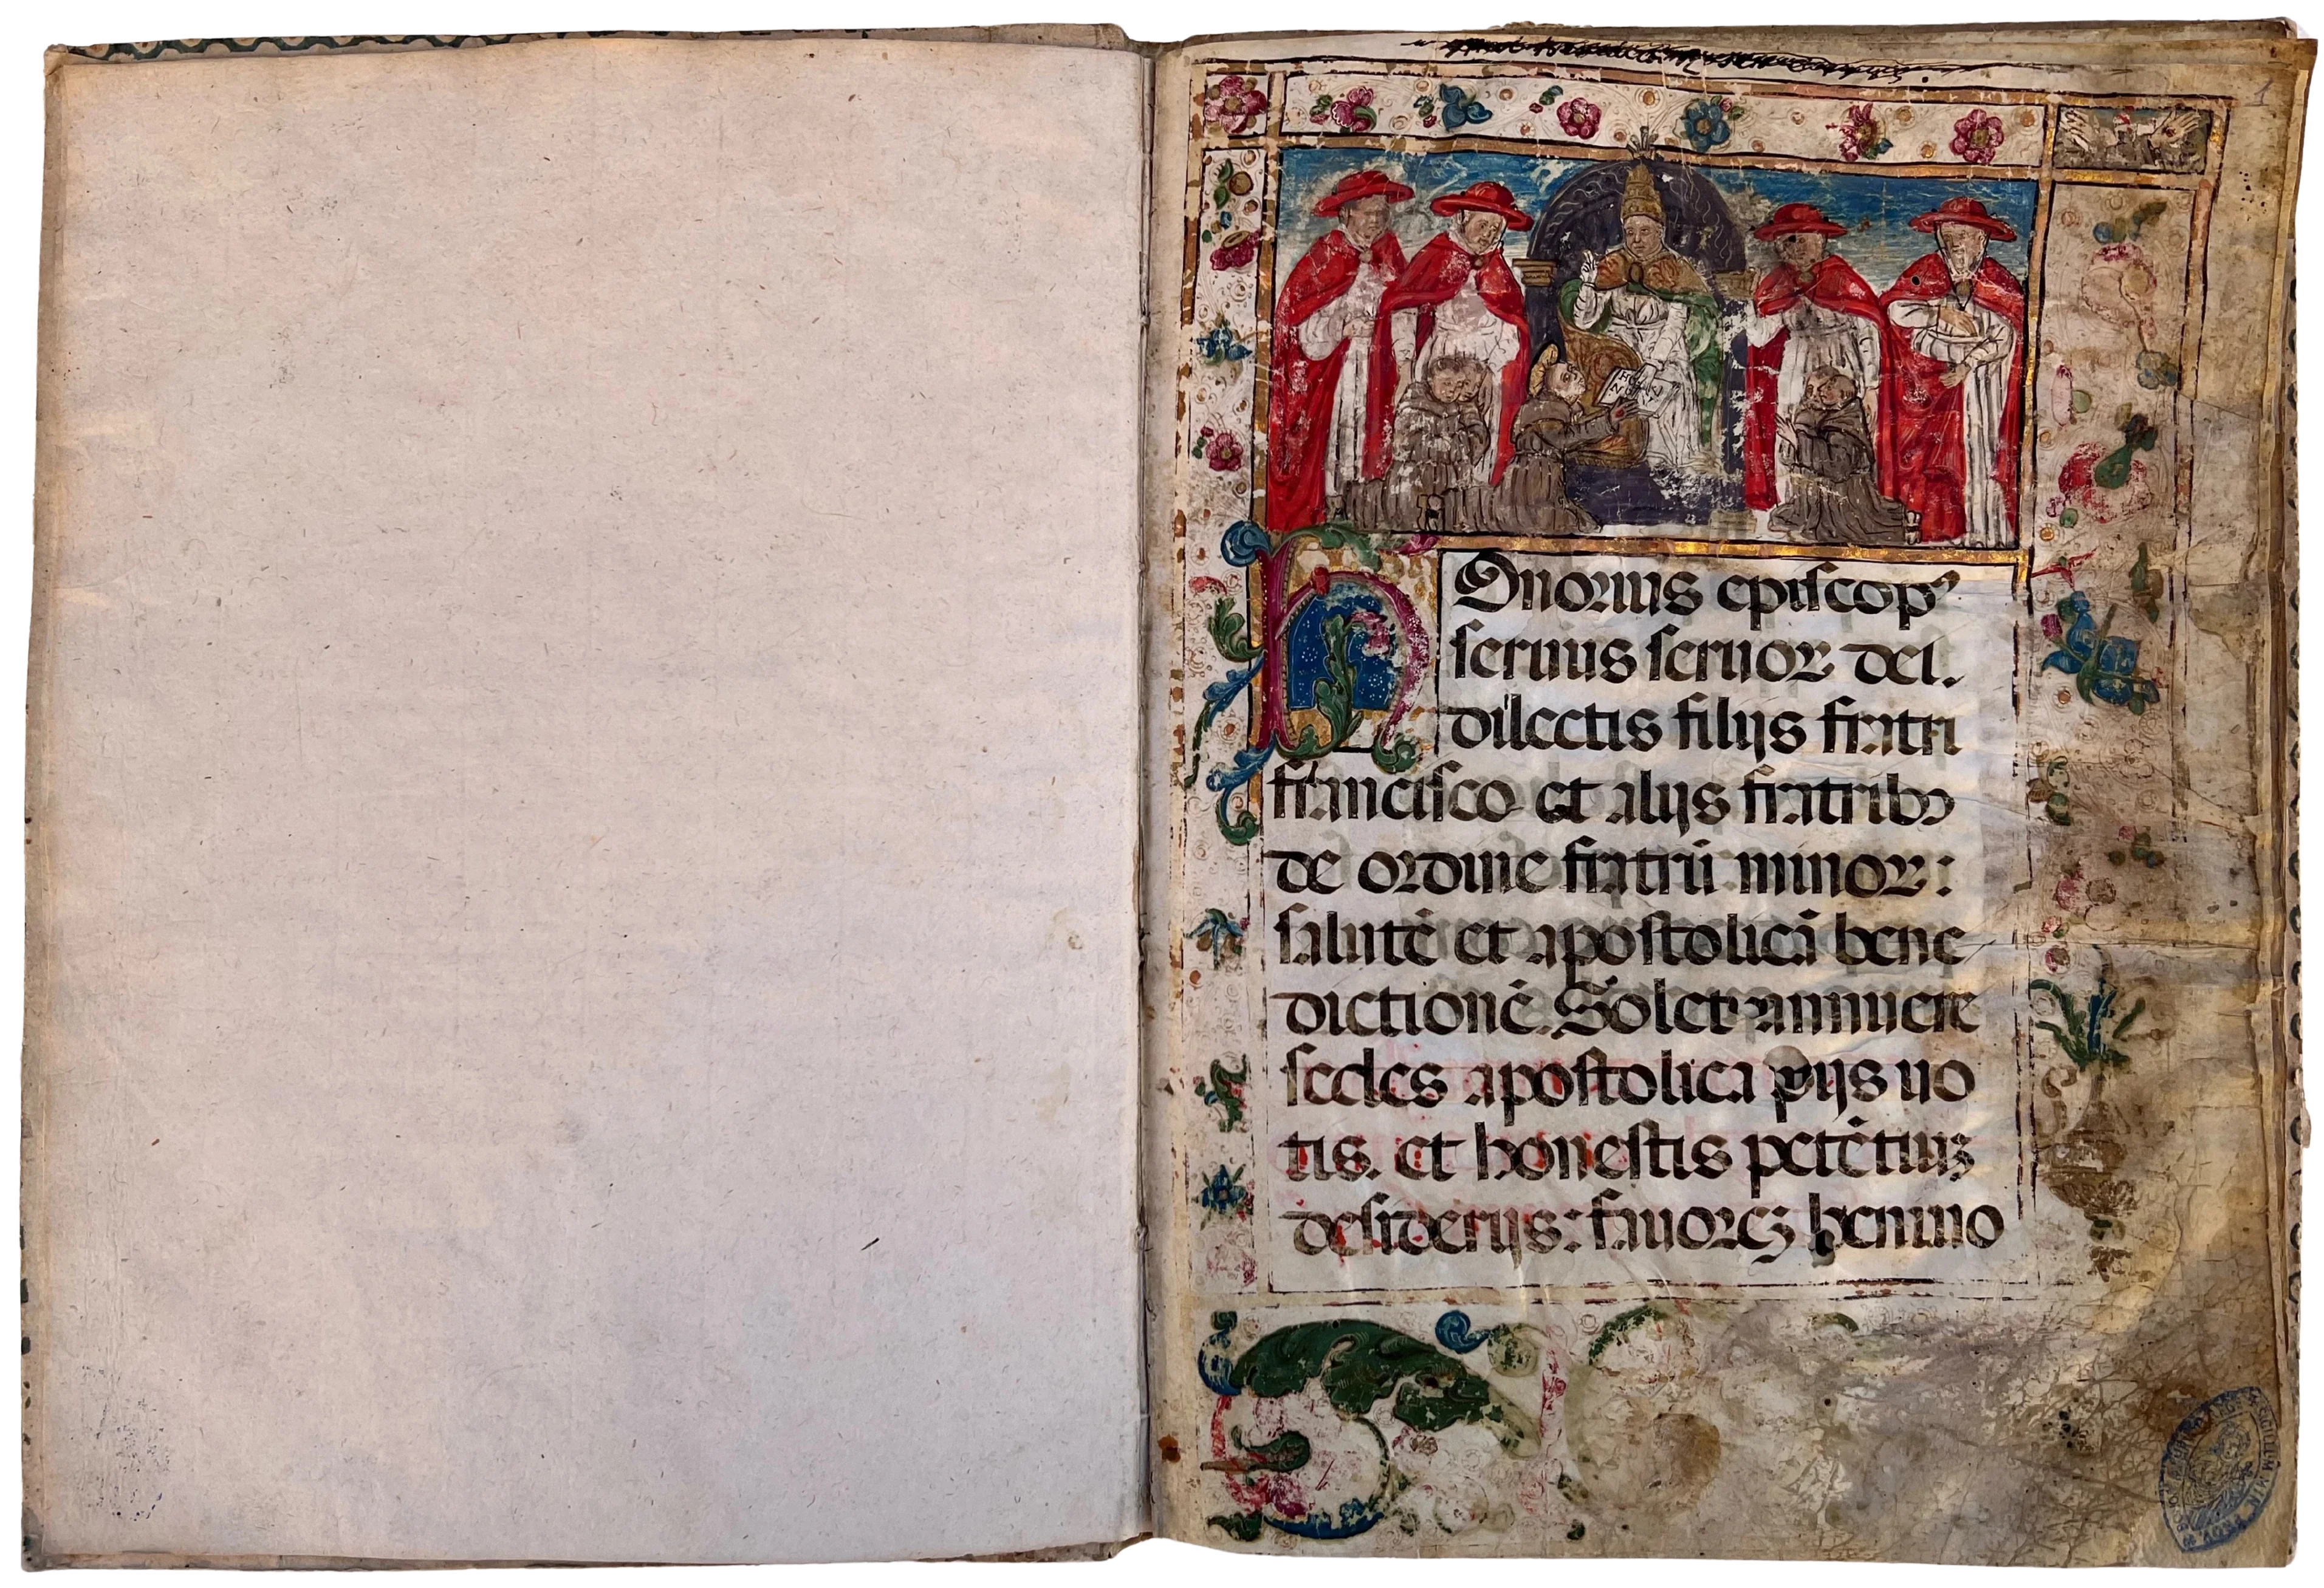 1
HOnorius episcopꝰ
seruus seruoꝝ dei.
dilectis filijs fratri
francisco et alijs fratribꝫ
de ordine fratrū minoꝝ:
salutē et apostolicā bene
dictionē. Solet annuere
sedes apostolica pijs uo
tis. et honestis petētiuꝫ
desiderijs: fauoreꝫ beniuo